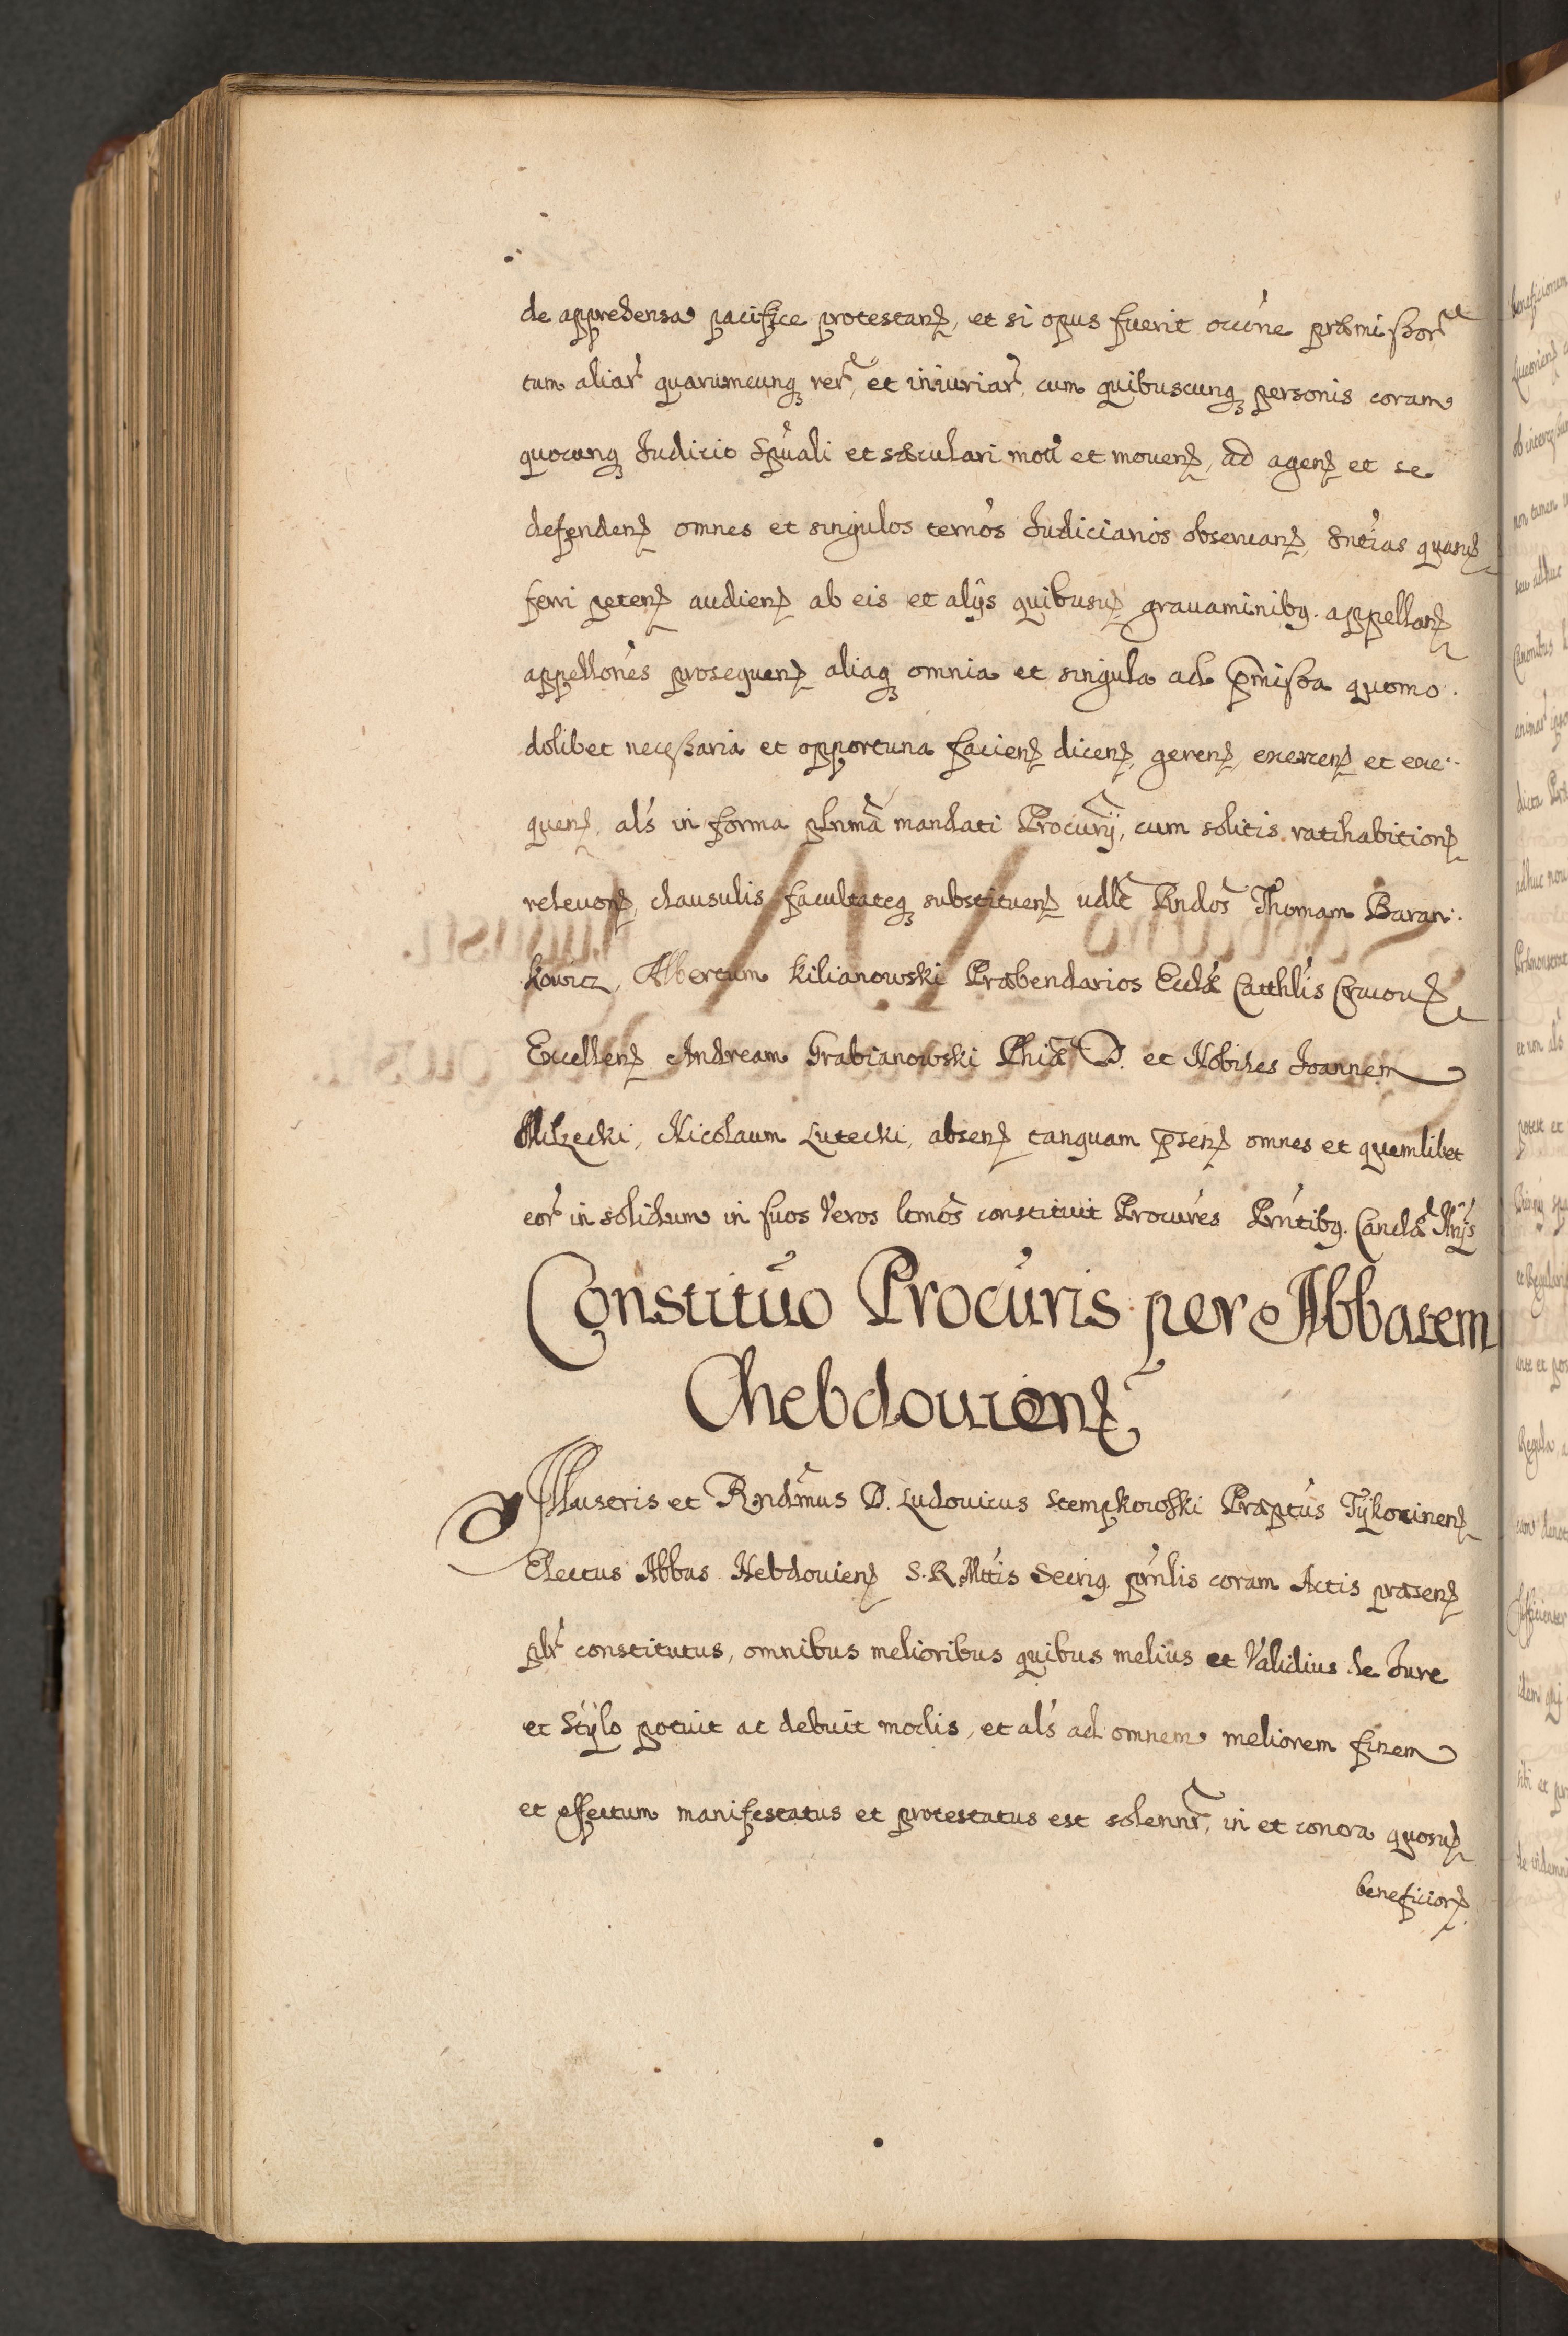 de apprehensa pacifice protestanꝫ, et si opus fuerit occ͠ne præmissor͠ et
tum aliar͠ quarumcunqꝫ rer͠, et iniuriar͠, cum quibuscunqꝫ personis coram
quocunqꝫ Iudicio Sp͠uali et sæculari mot͠ et mouenꝫ, ad agenꝫ et se
defendenꝫ omnes et singulos term͠os Iudiciarios obseruanꝫ, Snt͠ias quasuꝫ
ferri petenꝫ audienꝫ ab eis et alijs quibusuꝫ grauaminibꝫ. appellanꝫ
appello͠nes prosequenꝫ aliaqꝫ omnia et singula ad p͠missa quomo.
dolibet necessaria et opportuna facienꝫ dicenꝫ, gerenꝫ, exercenꝫ et exe.
quenꝫ, al͠s in forma pln͠ma mandati Procur͠ij, cum solitis ratihabitionꝫ
releuonꝫ, clausulis facultateqꝫ substituenꝫ udl͠t Rndos͠ Thomam Baran.
kowicz, Albertum Kilianowski Præbendarios Eccl͠æ Catthl͠is Cracouꝫ
Excellenꝫ Andream Grabianowski Phi͠æ D. et Nobiles Joannem
Milzecki, Nicolaum Lutecki, absenꝫ tanquam p͠senꝫ omnes et quemlibet
eor͠ in solidum in suos Veros ltm͠os constituit Procur͠es Prn͠tibꝫ. Candæ͠
Constitu͠o Procur͠is per Abbatem
Chebdouienꝫ
Illustris et Rndm͠us D. Ludouicus Stempkowski Præpt͠us Tykocinenꝫ
Electus Abbas Hebdouienꝫ S. R. Mt͠tis Secriꝫ. prn͠lis coram Actis præsenꝫ
plr͠ constitutus, omnibus melioribus quibus melius et Validius de Iure
et Stylo potuit ac debuit modis, et al͠s ad omnem meliorem finem
et effectum manifestatus et protestatus est solennr͠, in et contra quosuꝫ
beneficiorꝫ